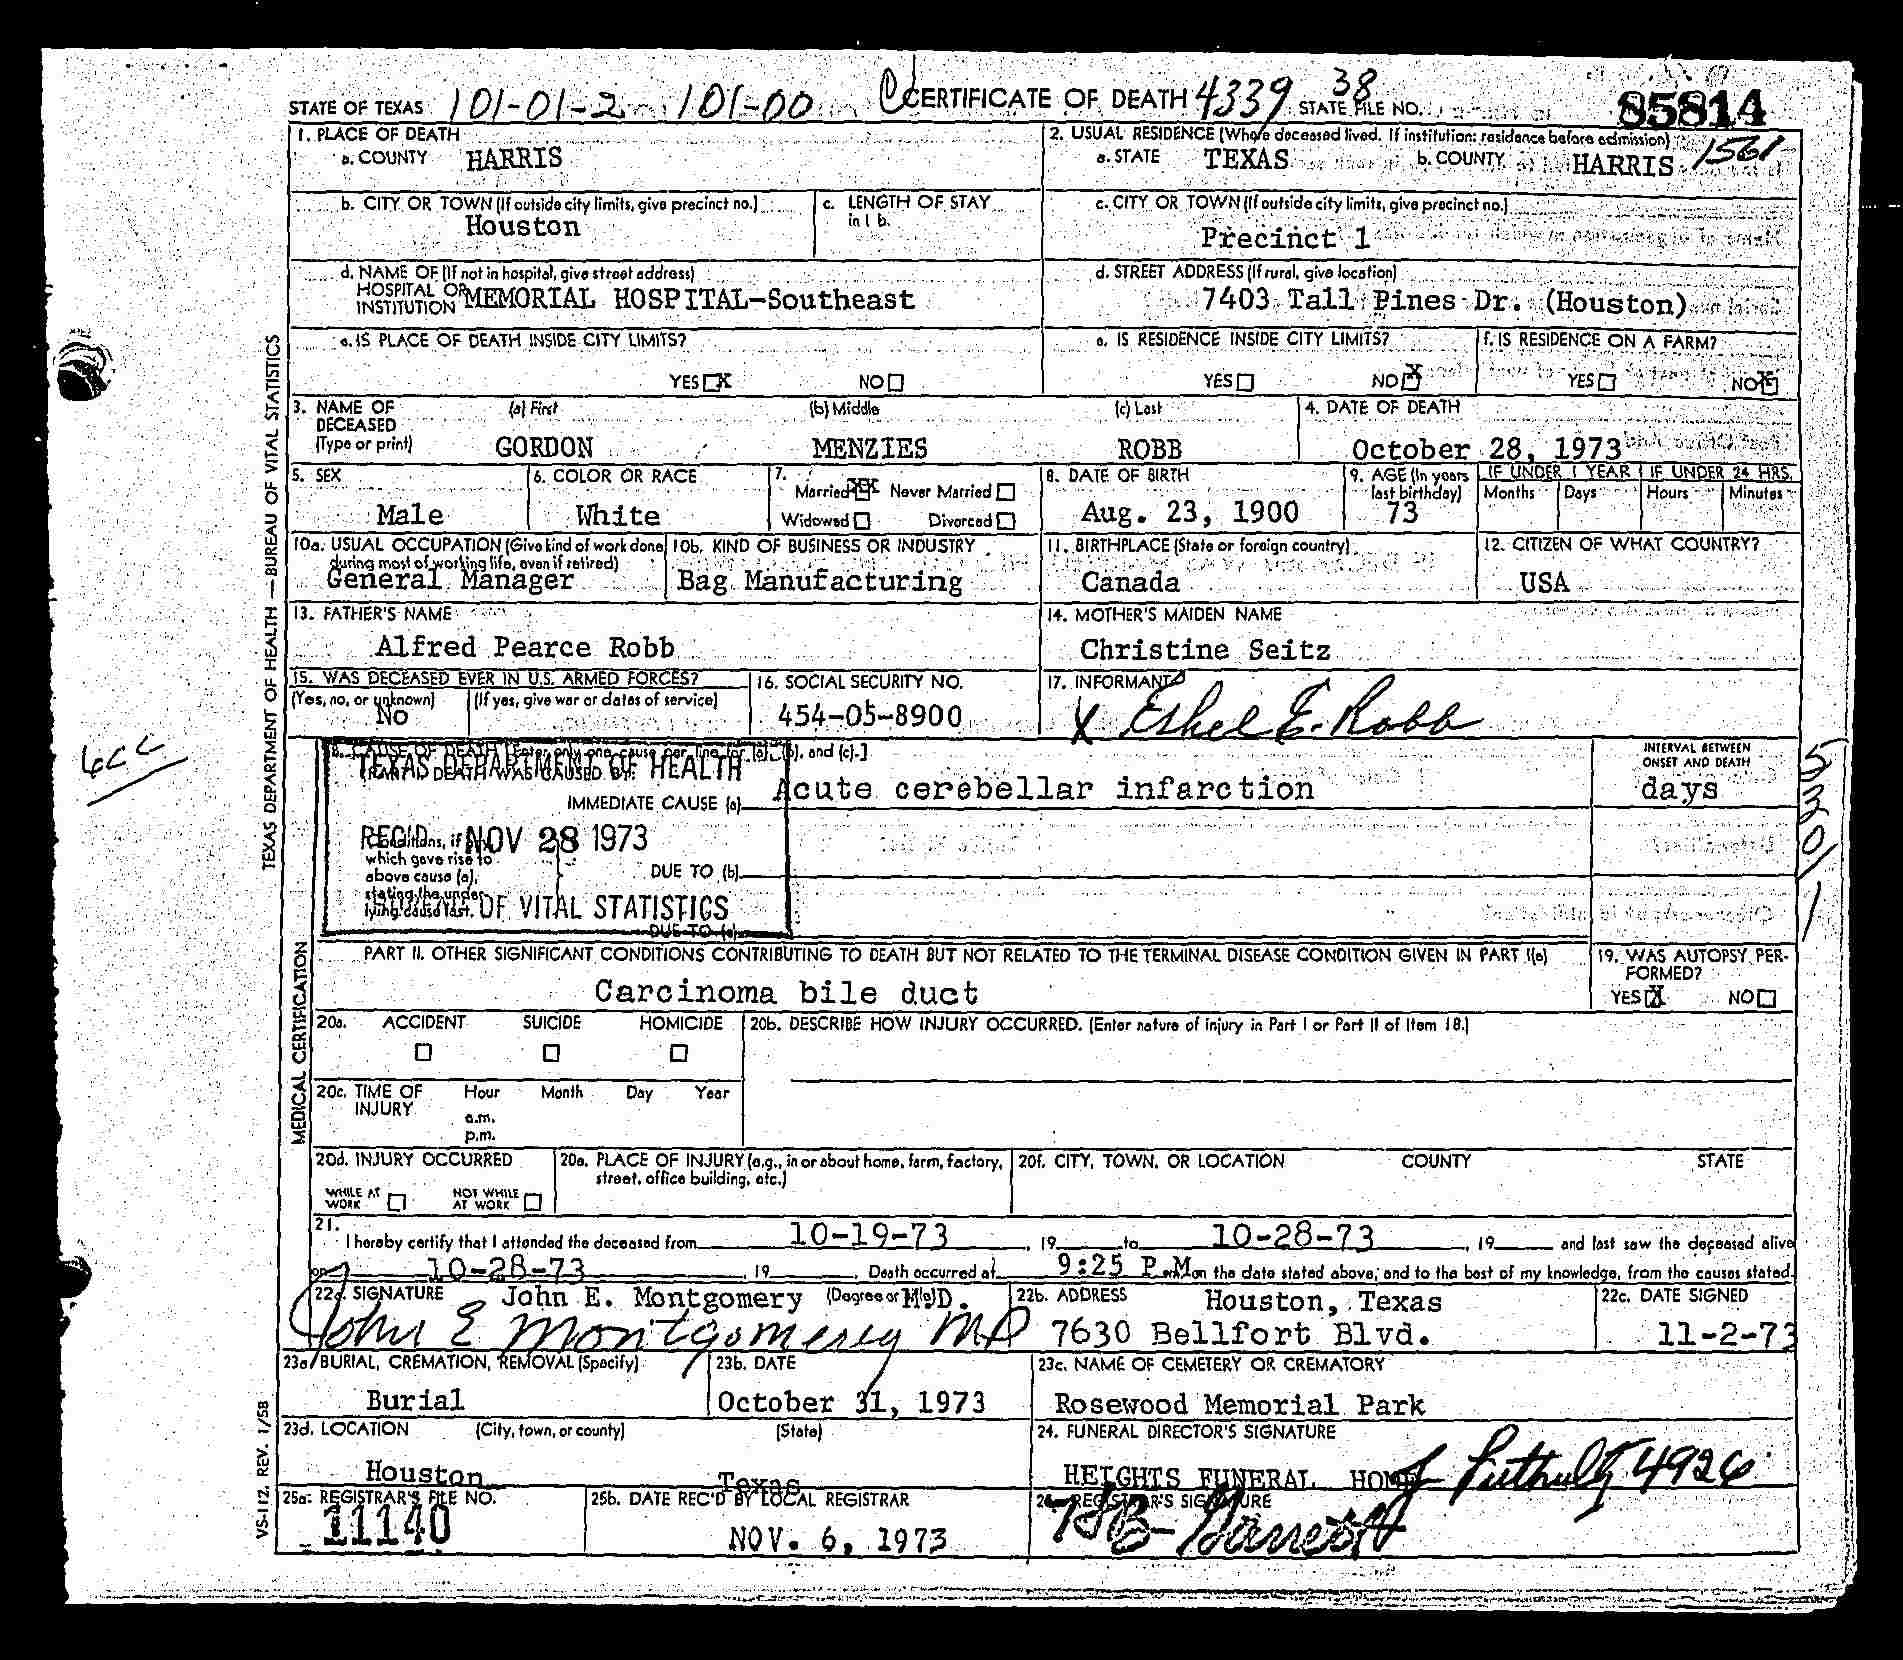 STATE OF TEXAS 101-01-2 101-00 CERTIFICATE OF DEATH 4339 38 STATE FILE NO. 85814
1. PLACE OF DEATH
a. COUNTY HARRIS
2. USUAL RESIDENCE (Where deceased lived. If institution: residence before admission)
a. STATE TEXAS b. COUNTY HARRIS 1561
b. CITY OR TOWN (If outside city limits, give precinct no.)
Houston
c. LENGTH OF STAY
in 1 b.
c. CITY OR TOWN (If outside city limits, give precinct no.)
Precinct 1
d. NAME OF (If not in hospital, give street address)
HOSPITAL OR
INSTITUTION MEMORIAL HOSPITAL-Southeast
d. STREET ADDRESS (If rural, give location)
7403 Tall Pines Dr. (Houston)
e. IS PLACE OF DEATH INSIDE CITY LIMITS?
YES X NO
e. IS RESIDENCE INSIDE CITY LIMITS?
YES NO X
f. IS RESIDENCE ON A FARM?
YES NO X
3. NAME OF DECEASED
(Type or print)
(a) First (b) Middle (c) Last
GORDON MENZIES ROBB
4. DATE OF DEATH
October 28, 1973
5. SEX
Male
6. COLOR OR RACE
White
7.
Married XX Never Married
Widowed Divorced
8. DATE OF BIRTH
Aug. 23, 1900
9. AGE (In years
last birthday)
73
IF UNDER 1 YEAR IF UNDER 24 HRS.
Months Days Hours Minutes
10a. USUAL OCCUPATION (Give kind of work done
during most of working life, even if retired)
General Manager
10b. KIND OF BUSINESS OR INDUSTRY
Bag Manufacturing
11. BIRTHPLACE (State or foreign country)
Canada
12. CITIZEN OF WHAT COUNTRY?
USA
13. FATHER'S NAME
Alfred Pearce Robb
14. MOTHER'S MAIDEN NAME
Christine Seitz
15. WAS DECEASED EVER IN U.S. ARMED FORCES?
(Yes, no, or unknown) (If yes, give war or dates of service)
No
16. SOCIAL SECURITY NO.
454-05-8900
17. INFORMANT
X Ethel E. Robb
18. CAUSE OF DEATH [Enter only one cause per line for (a), (b), and (c).]
PART I. DEATH WAS CAUSED BY:
TEXAS DEPARTMENT OF HEALTH
IMMEDIATE CAUSE (a) Acute cerebellar infarction
INTERVAL BETWEEN
ONSET AND DEATH
days
REC'D NOV 28 1973
Conditions, if any
which gave rise to
above cause (a),
stating the under-
lying cause last.
DUE TO (b)
BUREAU OF VITAL STATISTICS
DUE TO (c)
PART II. OTHER SIGNIFICANT CONDITIONS CONTRIBUTING TO DEATH BUT NOT RELATED TO THE TERMINAL DISEASE CONDITION GIVEN IN PART I(a)
Carcinoma bile duct
19. WAS AUTOPSY PER-
FORMED?
YES X NO
20a. ACCIDENT SUICIDE HOMICIDE
20b. DESCRIBE HOW INJURY OCCURRED. (Enter nature of injury in Part I or Part II of Item 18.)
20c. TIME OF
INJURY
Hour Month Day Year
a.m.
p.m.
20d. INJURY OCCURRED
WHILE AT
WORK
NOT WHILE
AT WORK
20e. PLACE OF INJURY (e.g., in or about home, farm, factory,
street, office building, etc.)
20f. CITY, TOWN, OR LOCATION COUNTY STATE
21.
I hereby certify that I attended the deceased from 10-19-73, 19 to 10-28-73, 19 and last saw the deceased alive
on 10-28-73, 19. Death occurred at 9:25 P.M. on the date stated above; and to the best of my knowledge, from the causes stated.
22a. SIGNATURE John E. Montgomery (Degree or title) M.D.
John E Montgomery MD
22b. ADDRESS Houston, Texas
7630 Bellfort Blvd.
22c. DATE SIGNED
11-2-73
23a. BURIAL, CREMATION, REMOVAL (Specify)
Burial
23b. DATE
October 31, 1973
23c. NAME OF CEMETERY OR CREMATORY
Rosewood Memorial Park
23d. LOCATION (City, town, or county) (State)
Houston Texas
24. FUNERAL DIRECTOR'S SIGNATURE
HEIGHTS FUNERAL HOME 4926
25a. REGISTRAR'S FILE NO.
11140
25b. DATE REC'D BY LOCAL REGISTRAR
NOV. 6, 1973
26. REGISTRAR'S SIGNATURE
TEXAS DEPARTMENT OF HEALTH — BUREAU OF VITAL STATISTICS
MEDICAL CERTIFICATION
VS-112. REV. 1/58
5301